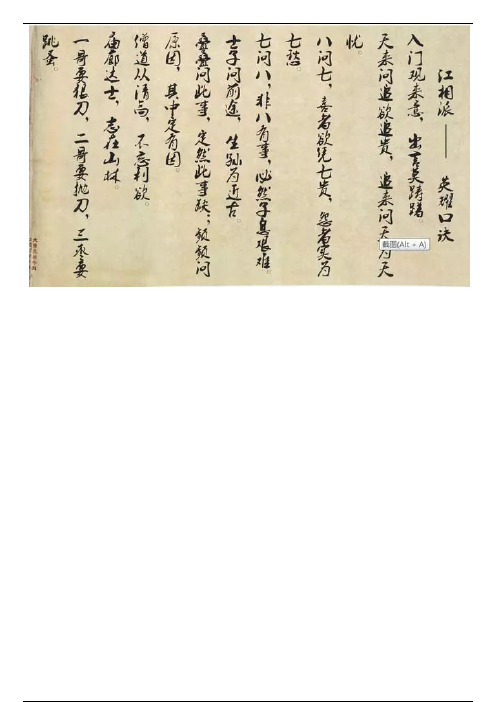 江相派 —— 英耀口诀
入门观来意，出言莫踌躇
天来问追欲追贵，追来问天为天
忧。
八问七，喜者欲凭七贵，怨者实为
七愁。
七问八，非八有事，必然子息艰难。
士子问前途，生孙为近古。
叠叠问此事，定然此事缺；频频问
原因，其中定有因。
僧道从清高，不忘利欲。
庙廊达士，志在山林。
一哥要狠刀，二哥要抛刀，三丞要
跳蚤。
截图(Alt + A)